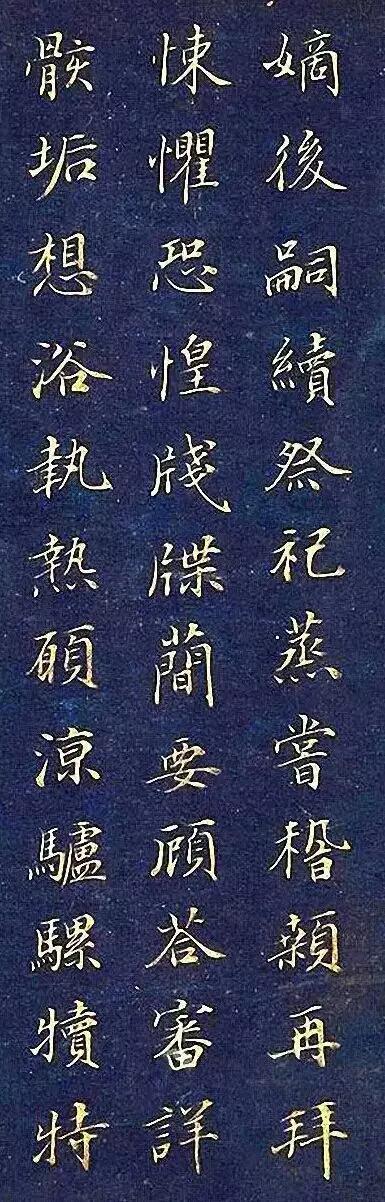 嫡後嗣續祭祀蒸嘗稽顙再拜
悚懼恐惶牋牒簡要顧荅審詳
骸垢想浴執熱願涼驢騾犢特